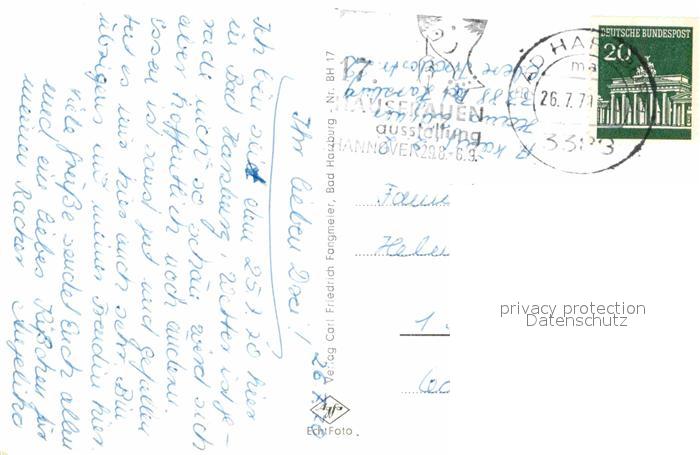 Ihr lieben Drei! 26.7.70
Ich bin seit dem 25.7.70 hier
in Bad Harzburg, Wetter ist ge-
rade nicht so schön wird sich
aber hoffentlich noch ändern.
Essen ist sonst gut und gefallen
tut es uns hier auch sehr. Bin
übrigens mit meiner Freundin hier.
Viele Grüße sendet Euch allen
und ein liebes Küßchen für
meinen Racker Angelika
Verlag Carl Friedrich Fangmeier, Bad Harzburg - Nr. BH 17
Echt Foto
17.
HAUSFRAUEN
ausstellung
HANNOVER 29.8.-6.9.
BAD HARZ
26.7.70
3388
DEUTSCHE BUNDESPOST
20
3388 Bad Harzburg
Fami
Hele
1
privacy protection
Datenschutz